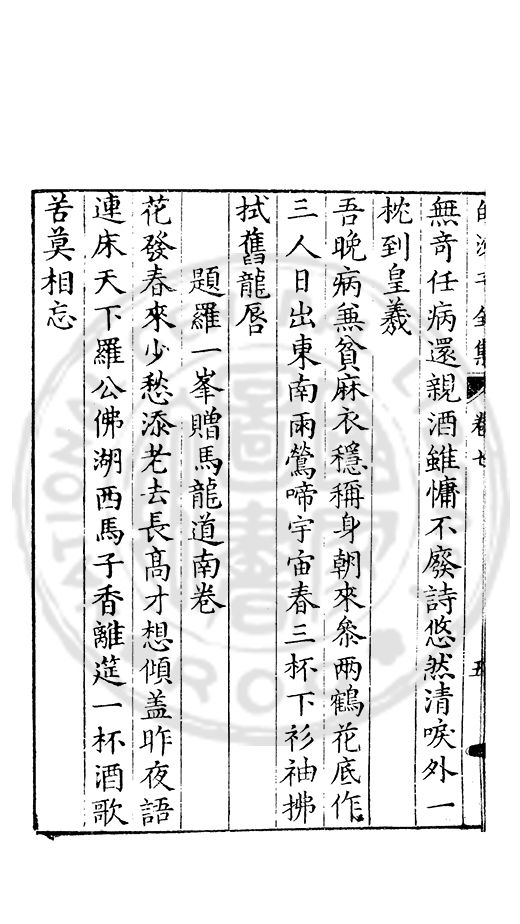 無奇任病還親酒雖慵不廢詩悠然清唳外一
枕到皇羲
吾晚病兼貧麻衣穩稱身朝來叅兩鶴花底作
三人日出東南雨鶯啼宇宙春三杯下衫袖拂
拭舊龍唇
題羅一峯贈馬龍道南卷
花發春來少愁添老去長髙才想傾盖昨夜語
連床天下羅公佛湖西馬子香離筵一杯酒歌
苦莫相忘